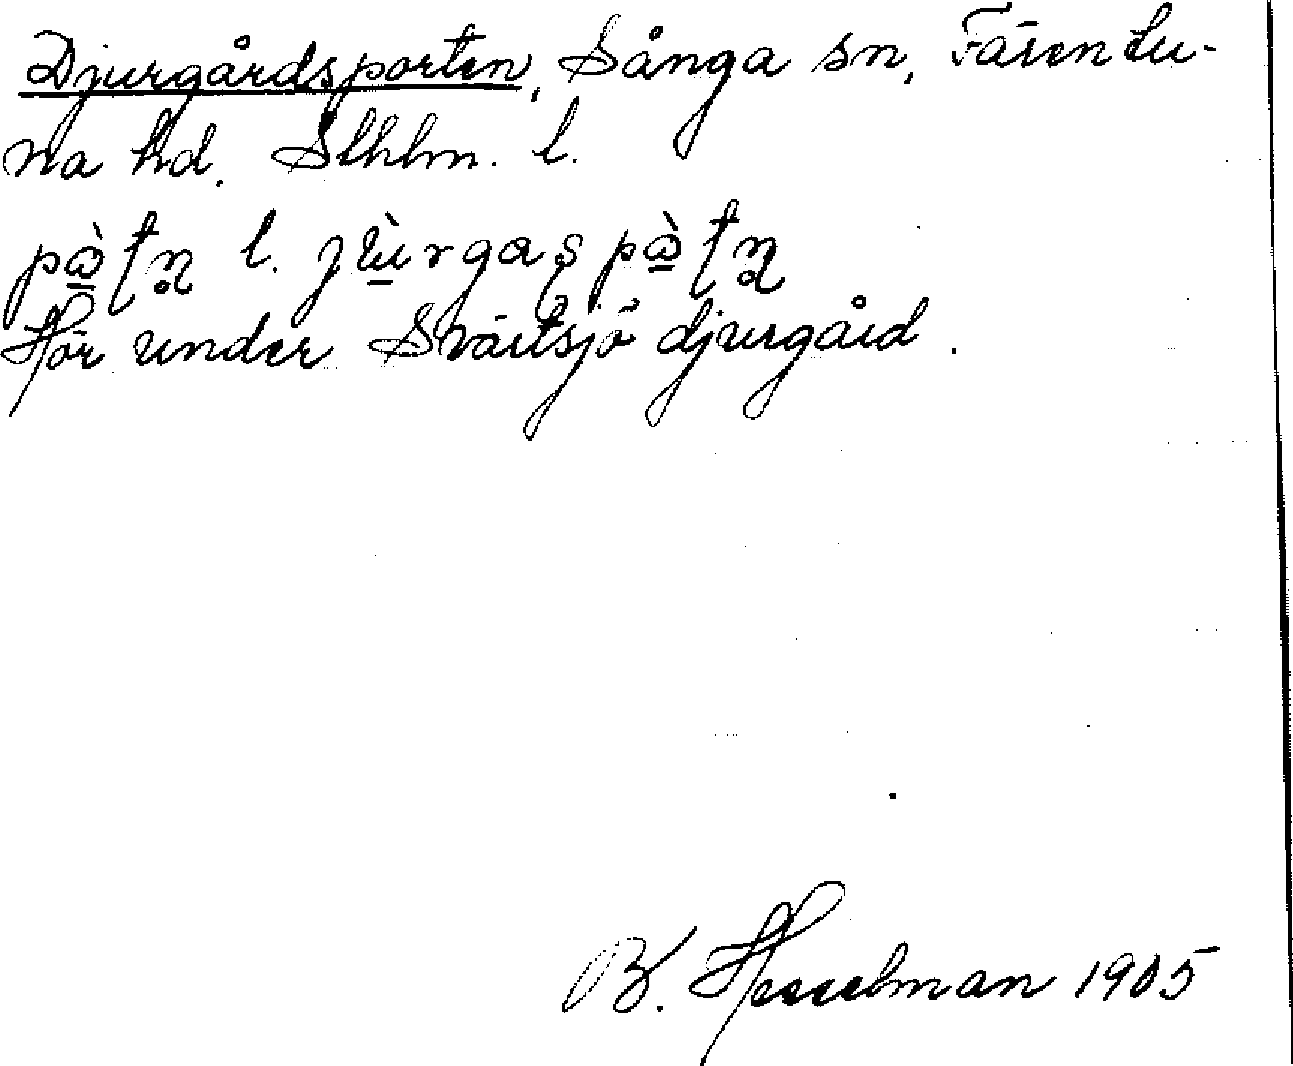 Djurgårdsporten, Sånga sn, Färentu-
na hd. Sthlm. l.
pὰ̱ʈn̥ l. jὺ̱rgaʂpὰ̱ʈn̥
Hör under Svartsjö djurgård.
B. Hesselman 1905